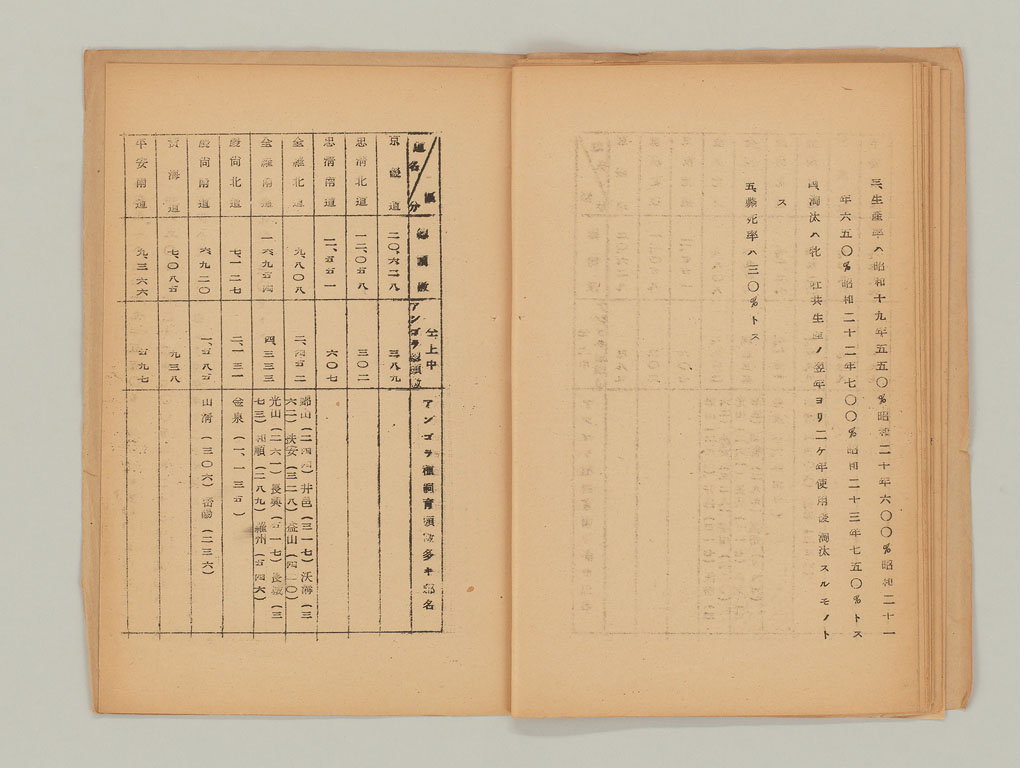 三、生産率ハ昭和十九年五五〇%昭和二十年六〇〇%昭和二十一
年六五〇%昭和二十二年七〇〇%昭和二十三年七五〇%トス
四、淘汰ハ牝、牡共生産ノ翌年ヨリ二ケ年使用後淘汰スルモノト
ス
五、斃死率ハ三〇%トス
道名 區分 總頭數 仝上中アンゴラ種頭數 アンゴラ種飼育頭數多キ郡名
京畿道 二〇、六二八 三八九
忠清北道 一二、〇五八 三〇二
忠清南道 六〇七
全羅北道 九、八〇八 二、四五二 錦山(二四四)井邑(三一七)沃溝(三
六二)扶安(三二八)益山(四一〇)
全羅南道 一六、九五四 四、三三三 光山(二六一)長興(五一七)長城(三
七三)和順(二八九)羅州(五四六)
慶尚北道 七、一二七 二、一三一 金泉(一、一三五)
慶尚南道 六、九二〇 一、五八五 山清(三〇六)晋陽(二三六)
黄海道 七、〇八五 九三八
平安南道 九、三六六 五九七